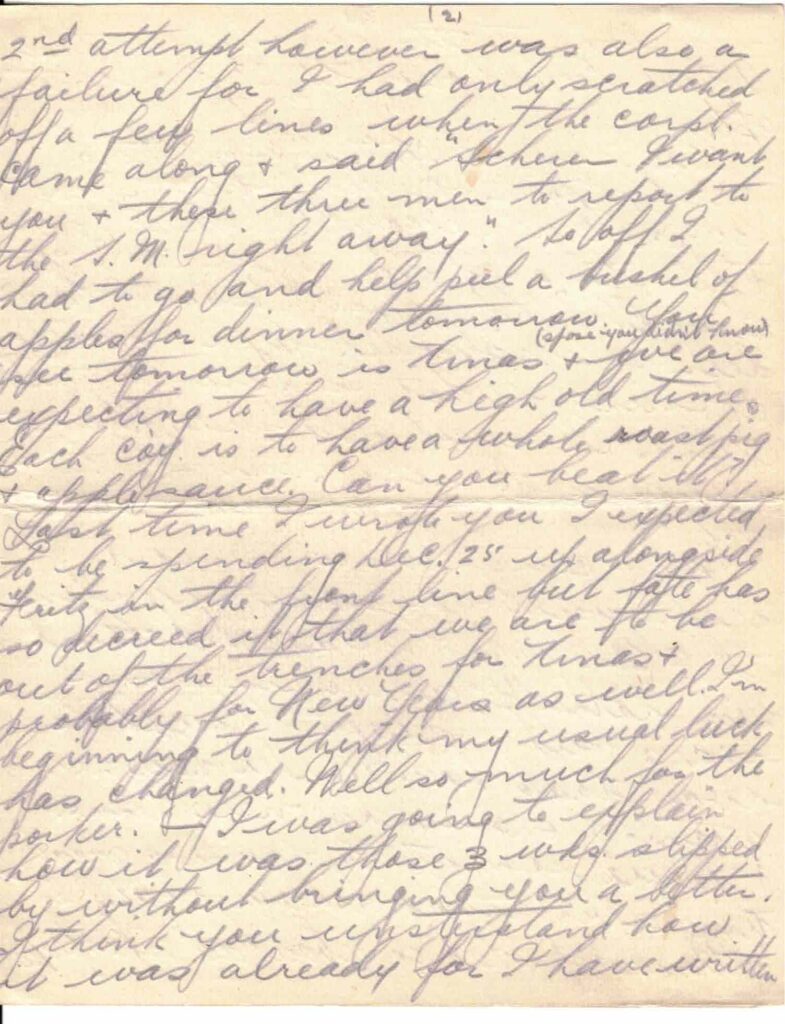 (2)
2nd attempt however was also a
failure for I had only scratched
off a few lines when the corpl.
came along + said "Scherer I want
you + these three men to report to
the S.M. right away." So off I
had to go and help peel a bushel of
apples for dinner tomorrow. You
(spose you didn't know)
see tomorrow is Xmas + we are
expecting to have a high old time.
Each coy. is to have a whole roast pig
+ apple sauce. Can you beat it?
Last time I wrote you I expected
to be spending Dec. 25 up alongside
Fritz in the front line but fate has
so decreed it that we are to be
out of the trenches for Xmas +
probably for New Years as well. I'm
beginning to think my usual luck
has changed. Well so much for the
porker. — I was going to explain
how it was those 3 wks. slipped
by without bringing you a letter.
I think you understand how
it was already for I have written